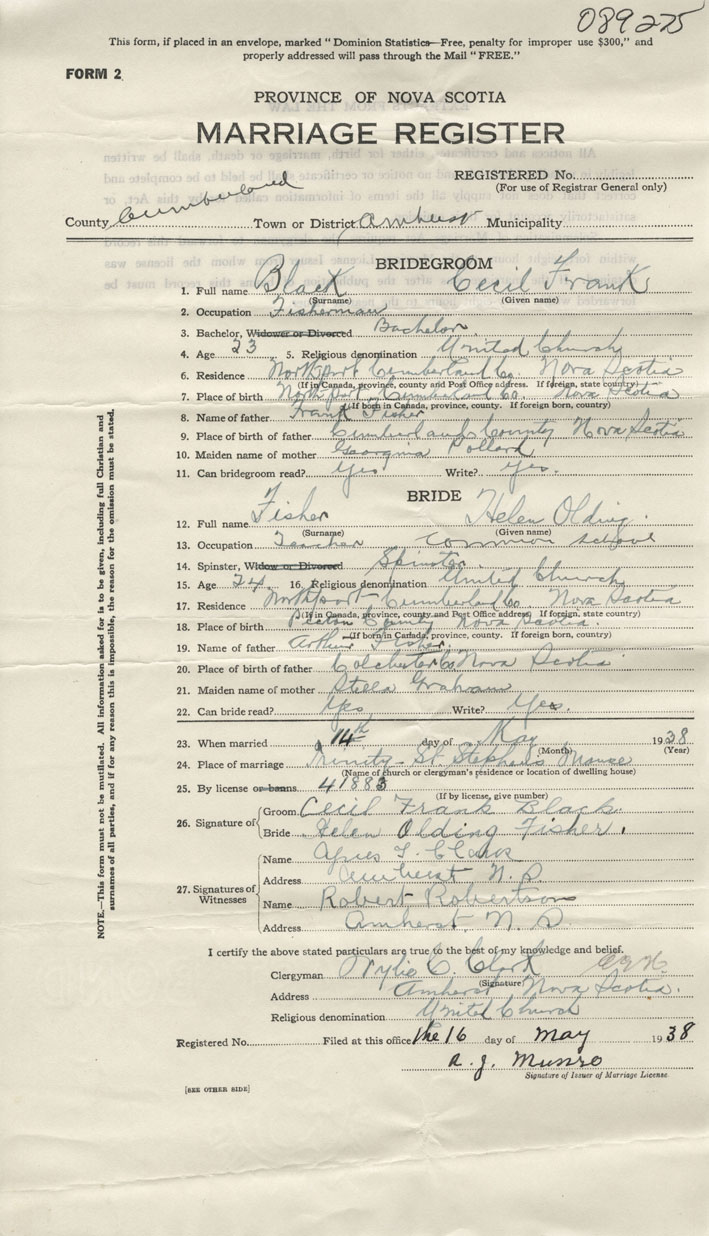 089275
This form, if placed in an envelope, marked "Dominion Statistics—Free, penalty for improper use $300," and
properly addressed will pass through the Mail "FREE."
FORM 2
PROVINCE OF NOVA SCOTIA
MARRIAGE REGISTER
REGISTERED No.
(For use of Registrar General only)
County Cumberland Town or District Amherst Municipality
BRIDEGROOM
1. Full name Black Cecil Frank
(Surname) (Given name)
2. Occupation Fisherman
3. Bachelor, Widower or Divorced Bachelor.
4. Age 23 5. Religious denomination United Church
6. Residence Northport Cumberland Co. Nova Scotia
(If in Canada, province, county and Post Office address. If foreign, state country)
7. Place of birth Northport Cumberland Co. Nova Scotia
(If born in Canada, province, county. If foreign born, country)
8. Name of father Frank Fisher
9. Place of birth of father Cumberland County Nova Scotia
10. Maiden name of mother Georgina Pollard
11. Can bridegroom read? Yes Write? Yes.
BRIDE
12. Full name Fisher Helen Olding.
(Surname) (Given name)
13. Occupation Teacher Common School
14. Spinster, Widow or Divorced Spinster.
15. Age 24. 16. Religious denomination United Church
17. Residence Northport Cumberland Co. Nova Scotia
(If in Canada, province, county and Post Office address. If foreign, state country)
18. Place of birth Pictou County Nova Scotia.
(If born in Canada, province, county. If foreign born, country)
19. Name of father Arthur Fisher.
20. Place of birth of father Colchester Co Nova Scotia
21. Maiden name of mother Stella Graham
22. Can bride read? Yes Write? Yes.
23. When married 14th day of May 1938
(Month) (Year)
24. Place of marriage Trinity-St. Stephen's Manse
(Name of church or clergyman's residence or location of dwelling house)
25. By license or banns 41883
(If by license, give number)
26. Signature of Groom Cecil Frank Black.
Bride Helen Olding Fisher.
27. Signatures of Witnesses
Name Clark
Address Amherst N.S
Name Robert Robertson
Address Amherst, N.S.
I certify the above stated particulars are true to the best of my knowledge and belief.
Clergyman Wylie C. Clark
(Signature)
Address Amherst Nova Scotia.
Religious denomination United Church
Registered No. Filed at this office the 16 day of May 1938
A. J. Munro
Signature of Issuer of Marriage License
[SEE OTHER SIDE]
NOTE.—This form must not be mutilated. All information asked for is to be given, including full Christian and
surnames of all parties, and if for any reason this is impossible, the reason for the omission must be stated.